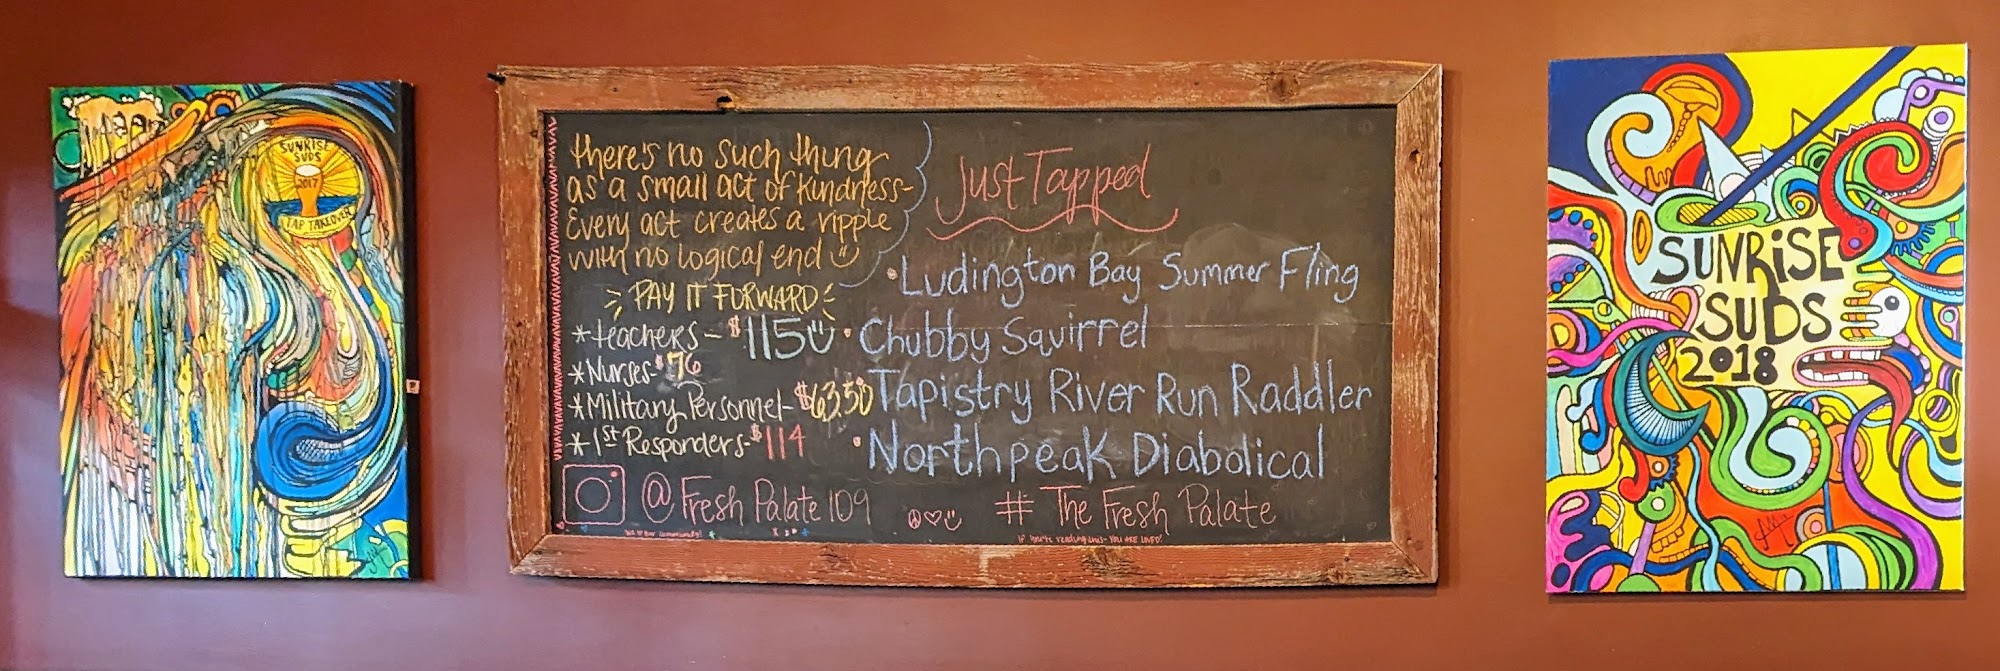 SUNRISE
SUDS
2017
TAP TAKEOVER
there's no such thing
as a small act of kindness-
Every act creates a ripple
with no logical end
PAY IT FORWARD
*teachers - $115
*Nurses- $76
*Military Personnel- $63.50
*1st Responders- $114
@Fresh Palate 109
Just Tapped
Ludington Bay Summer Fling
Chubby Squirrel
Tapistry River Run Raddler
Northpeak Diabolical
# The Fresh Palate
If you're reading this- YOU ARE LOVED!
SUNRISE
SUDS
2018